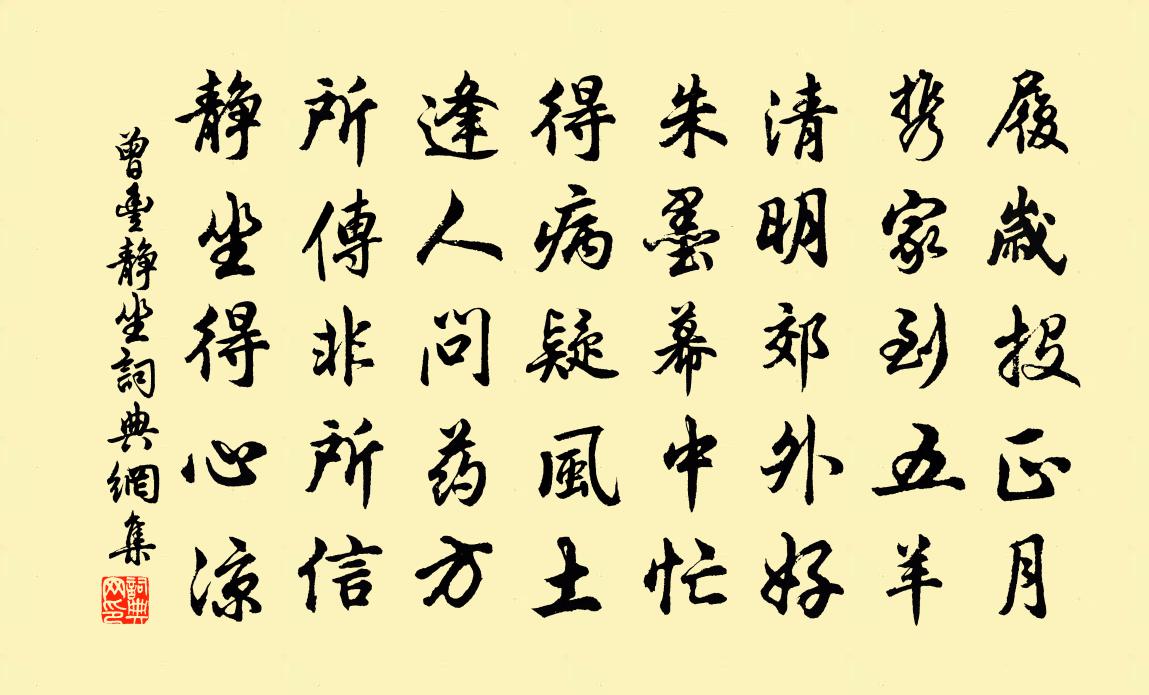 履歲投正月
携家到五羊
清明郊外好
朱墨幕中忙
得病疑風土
逢人问药方
所傳非所信
静坐得心涼
曾豊静坐詞典網集
詞典網印